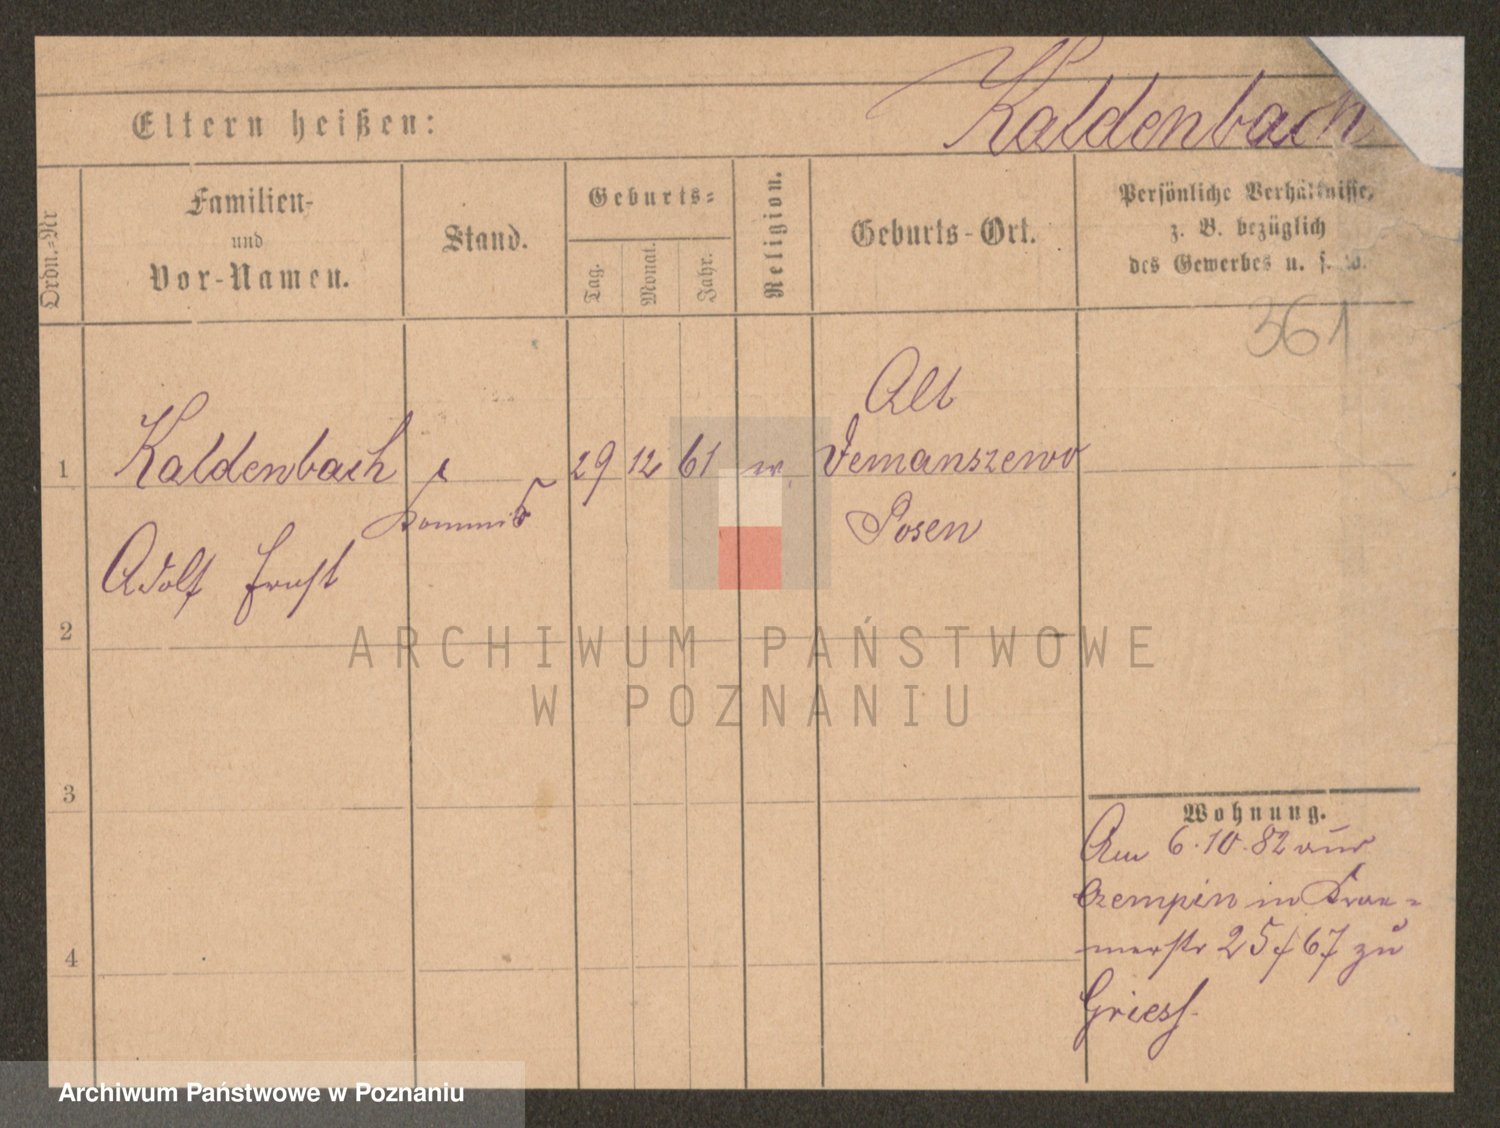 Kaldenbach
Eltern heißen:
Ordn.=Nr
Familien-
und
Vor-Namen.
Stand.
Geburts=
Tag.
Monat.
Jahr.
Religion.
Geburts-Ort.
Persönliche Verhältnisse,
z. B. bezüglich
des Gewerbes u. s. w.
361
Alt
1 Kaldenbach 29 12 61 Demanszewo
Kommis Posen
Adolf Ernst
2
ARCHIWUM PAŃSTWOWE
W POZNANIU
3
Wohnung.
Am 6.10.82 aus
Czempin in Krae-
4 merstr 25/67 zu
Griess
Archiwum Państwowe w Poznaniu